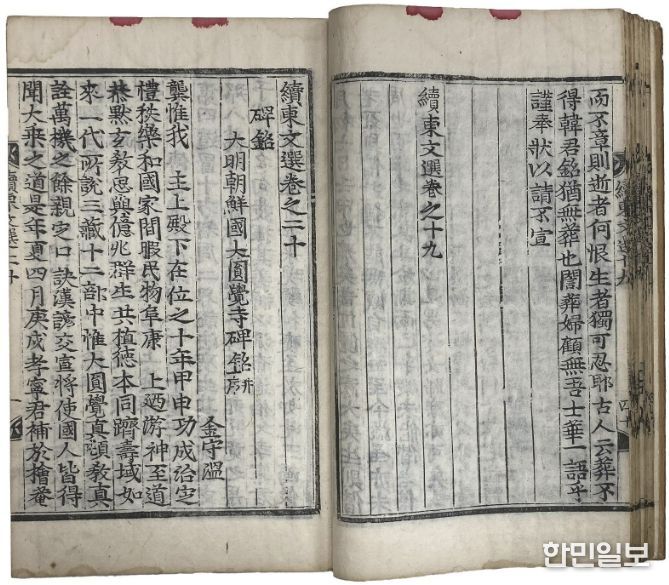 而不章則逝者何恨生者獨可忍耶古人云葬不
得韓君銘猶無葬也闇葬婦顧無吾士華一語乎
謹奉狀以請不宣
續東文選卷之十九
續東文選卷之二十
碑銘
大明朝鮮國大圓覺寺碑銘 并序
金守溫
龔惟我 主上殿下在位之十年甲申功成治定
禮秩樂和國家閒暇民物阜康 上迺游神至道
恭默玄教思與億兆群生共植德本同躋壽域如
來一代所說三藏十二部中惟大圓覺真頓教真
詮萬機之餘親定口訣漢諺交宣將使國人皆得
聞大乘之道是年夏四月庚戌孝寧君補於檜菴
한민일보